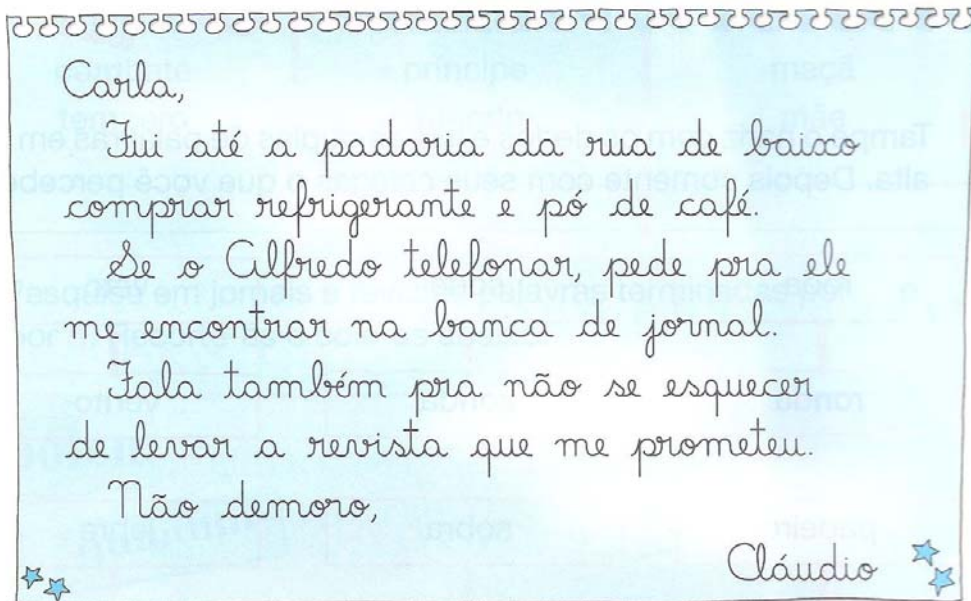 Carla,
Fui até a padaria da rua de baixo
comprar refrigerante e pó de café.
Se o Alfredo telefonar, pede pra ele
me encontrar na banca de jornal.
Fala também pra não se esquecer
de levar a revista que me prometeu.
Não demoro,
Cláudio